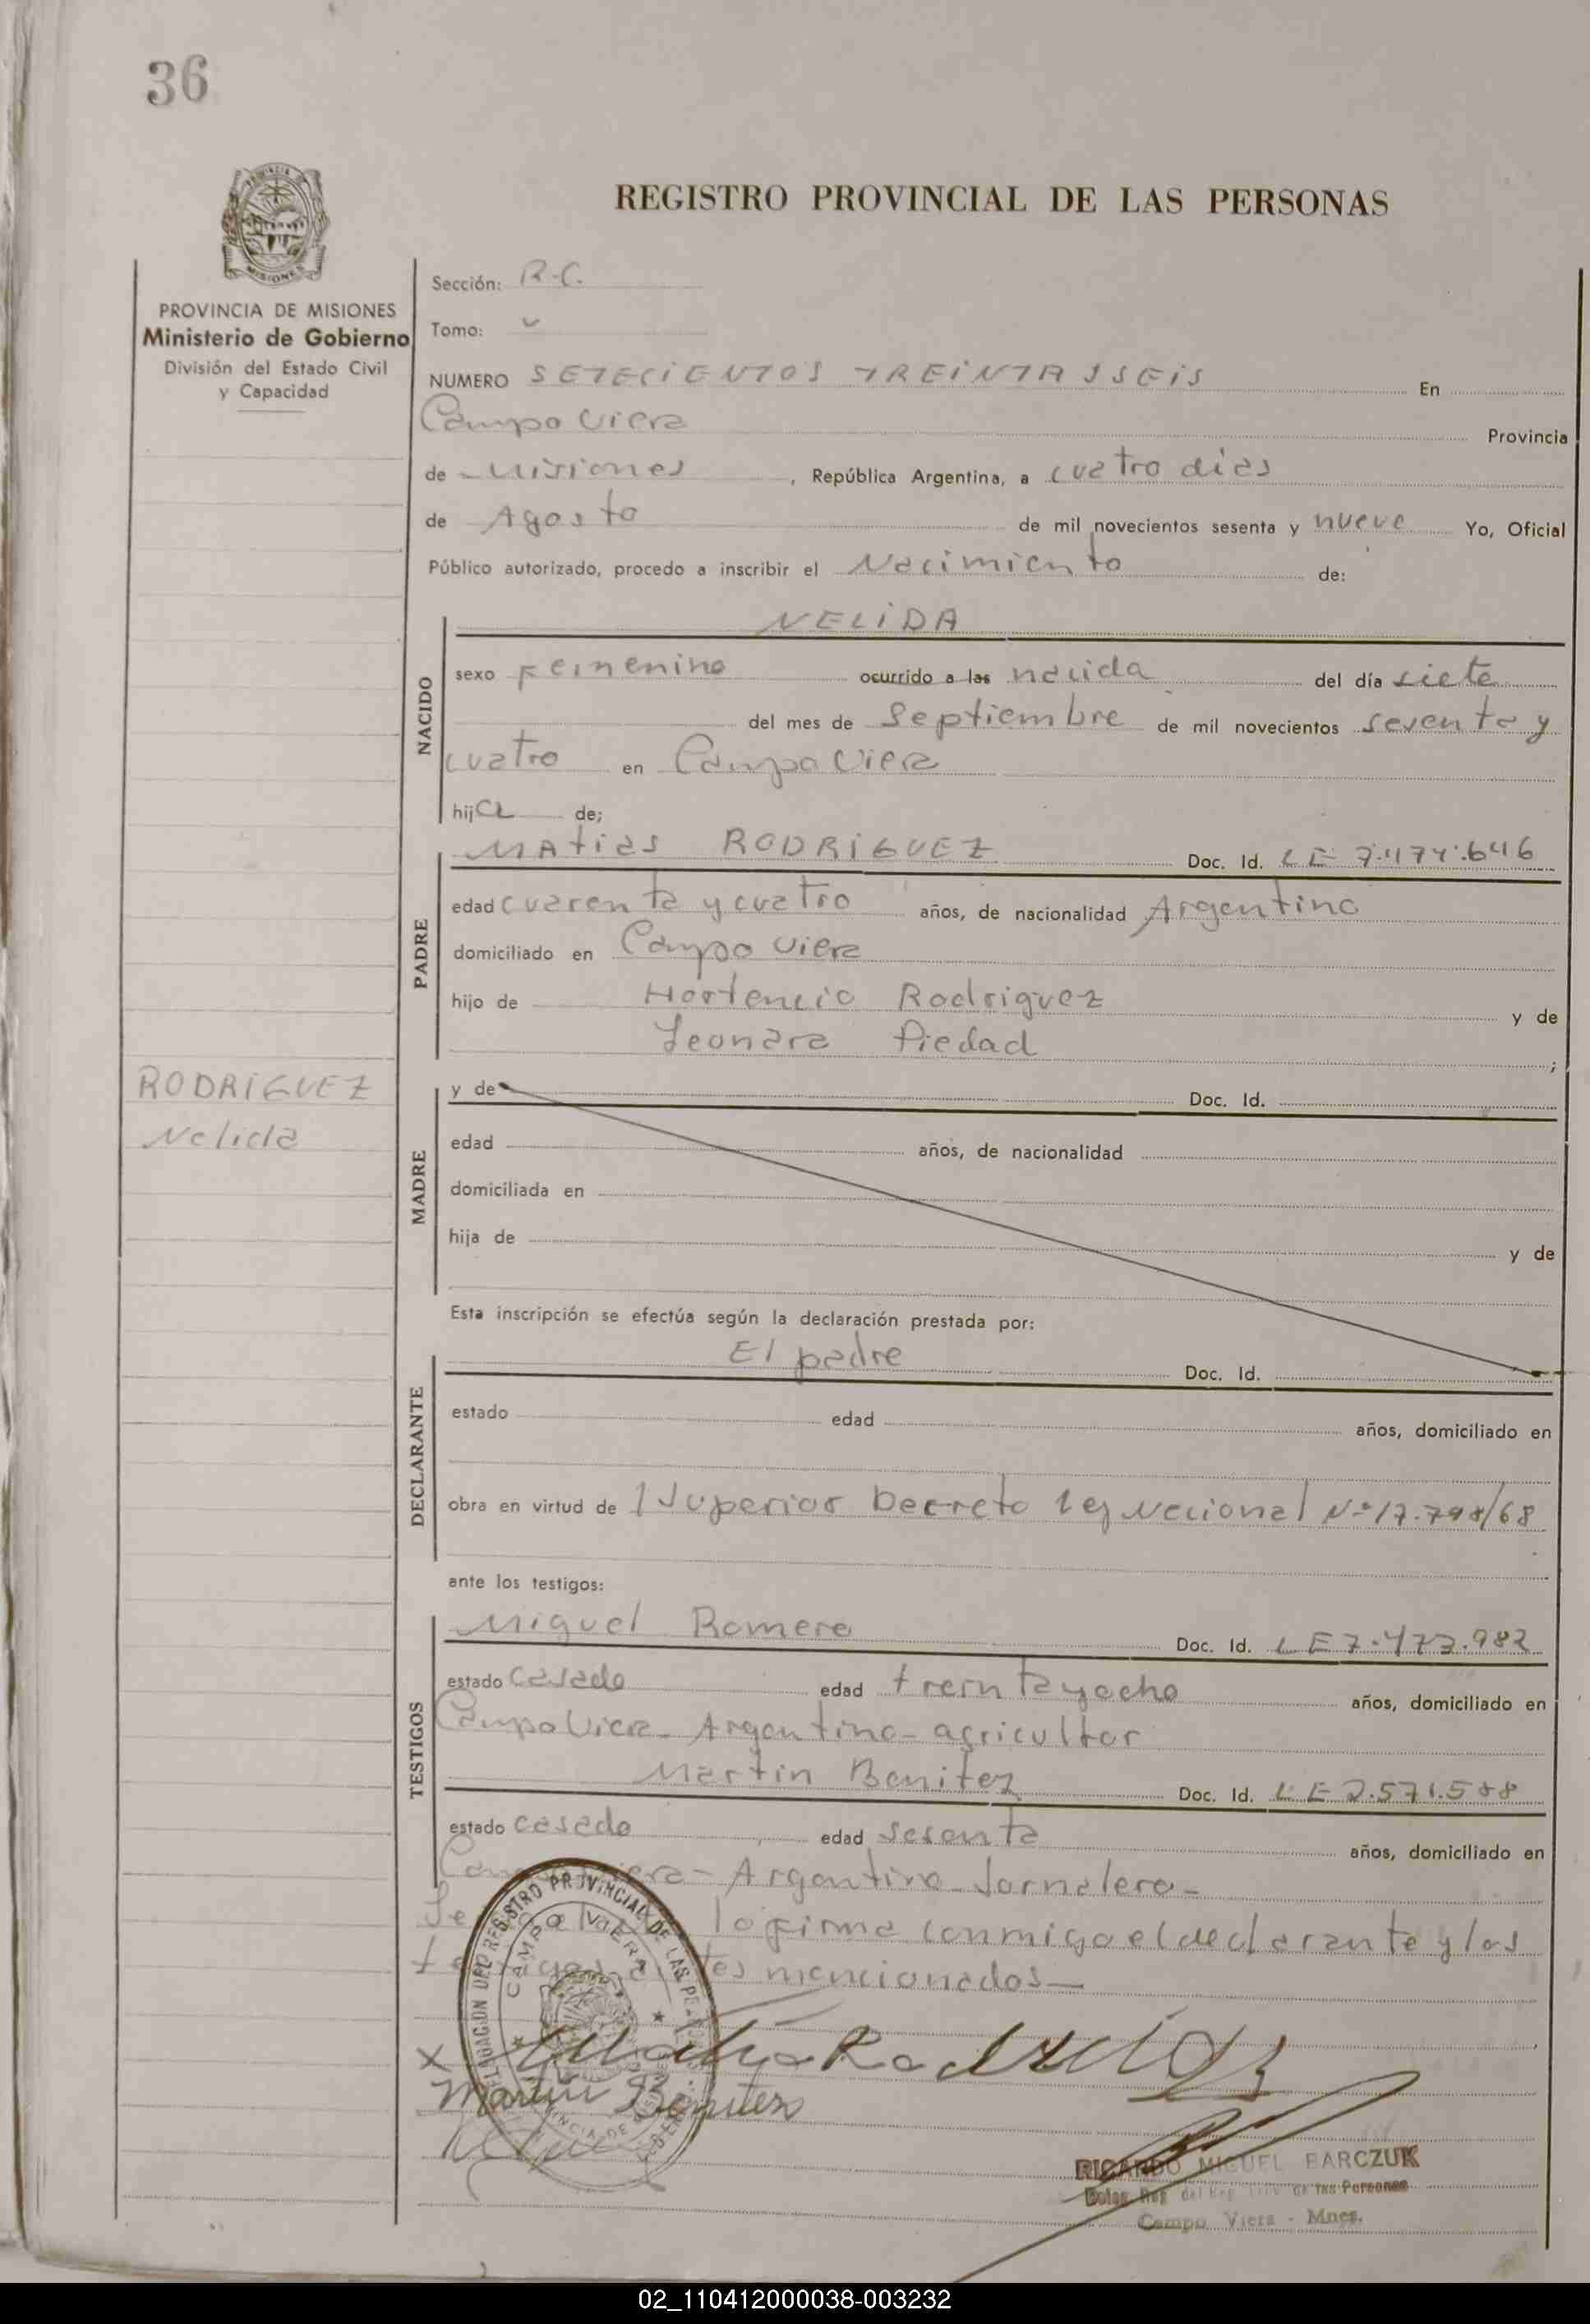 36
REGISTRO PROVINCIAL DE LAS PERSONAS
PROVINCIA DE MISIONES
Ministerio de Gobierno
División del Estado Civil
y Capacidad
Sección: R-C.
Tomo:
NUMERO SETECIENTOS TREINTA SSEIS En
Campo Viera Provincia
de Misiones, República Argentina, a cuatro dias
de Agosto de mil novecientos sesenta y nueve Yo, Oficial
Público autorizado, procedo a inscribir el Nacimiento de:
NACIDO
NELIDA
sexo Femenino ocurrido a las nacida del día siete
del mes de Septiembre de mil novecientos sesenta y
cuatro en Campo Viera
hija de;
PADRE
Matias RODRIGUEZ Doc. Id. LE 7.474.646
edad cuarenta y cuatro años, de nacionalidad Argentino
domiciliado en Campo Viera
hijo de Hortencio Rodriguez y de
Leonara Piedad ;
RODRIGUEZ
Nelida
MADRE
y de Doc. Id.
edad años, de nacionalidad
domiciliada en
hija de y de
Esta inscripción se efectúa según la declaración prestada por:
DECLARANTE
El padre Doc. Id.
estado edad años, domiciliado en
obra en virtud de l Superior Decreto Ley Nacional Nº 17.798/68
ante los testigos:
TESTIGOS
Miguel Romero Doc. Id. LE 7.473.982
estado casado edad treinta y ocho años, domiciliado en
Campo Viera - Argentino - agricultor
Martin Benitez Doc. Id. LE 2.571.588
estado casado edad sesenta años, domiciliado en
Campo Viera - Argentino - Jornalero -
lo firma conmigo el declarante y los
testigos antes mencionados —
DELEGACION DEL REGISTRO PROVINCIAL DE LAS PERSONAS
CAMPO VIERA
x Matia Rodriguez
Martin Benitez
RICARDO MIGUEL BARCZUK
Deleg. Reg. del Reg. Prov. de las Personas
Campo Viera - Mnes.
02_110412000038-003232